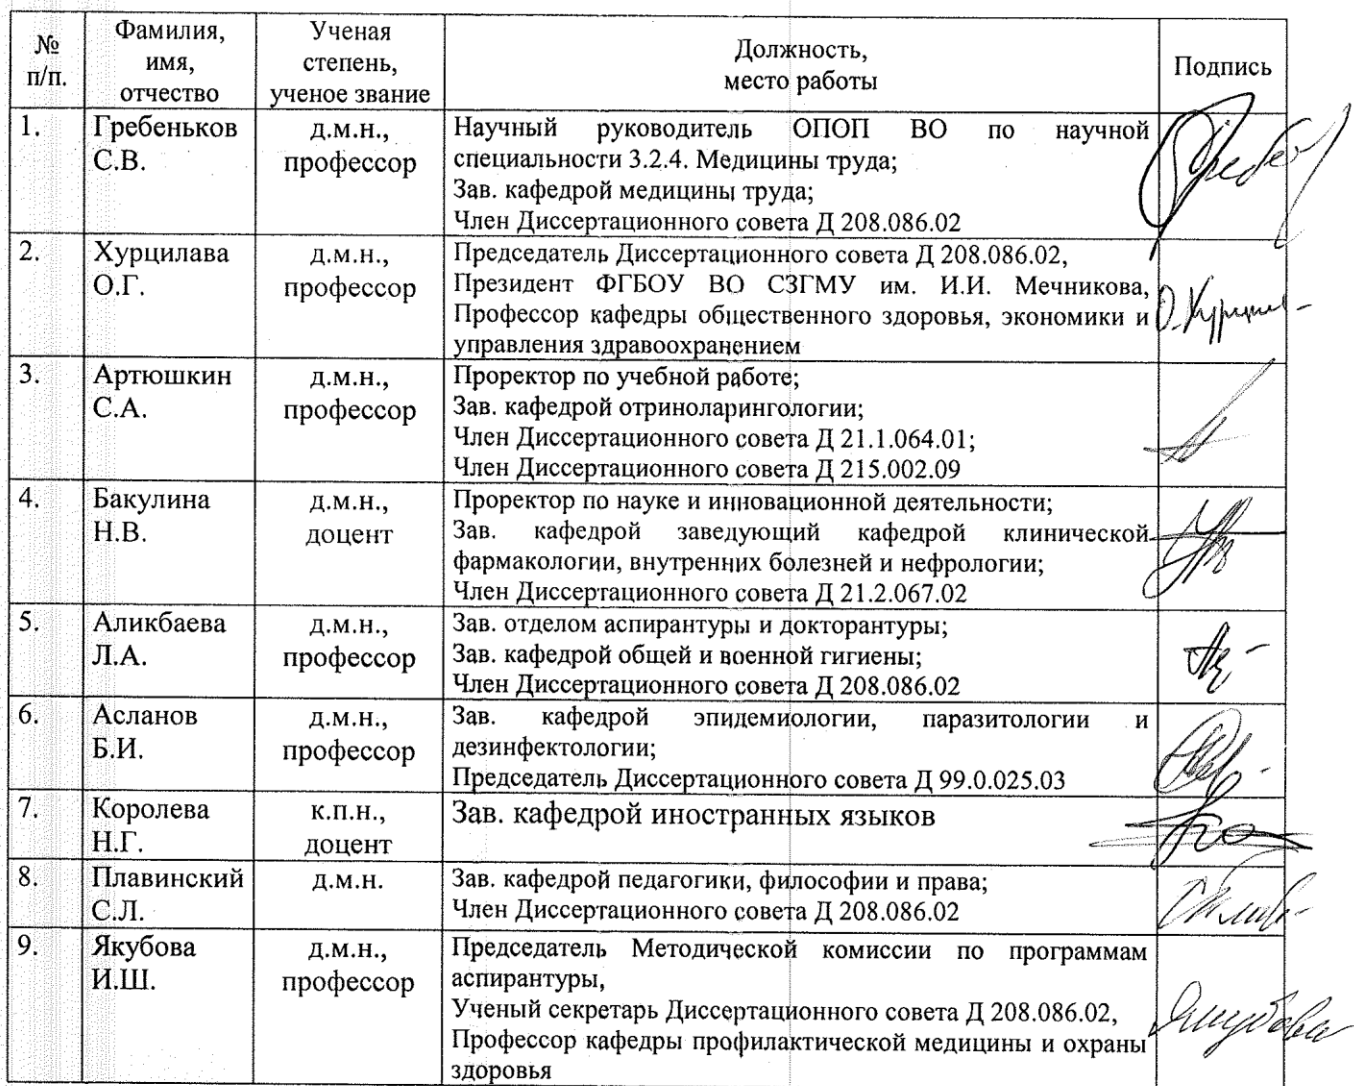 № п/п. Фамилия, имя, отчество Ученая степень, ученое звание Должность, место работы Подпись
1. Гребеньков С.В. д.м.н., профессор Научный руководитель ОПОП ВО по научной
специальности 3.2.4. Медицины труда;
Зав. кафедрой медицины труда;
Член Диссертационного совета Д 208.086.02
2. Хурцилава О.Г. д.м.н., профессор Председатель Диссертационного совета Д 208.086.02,
Президент ФГБОУ ВО СЗГМУ им. И.И. Мечникова,
Профессор кафедры общественного здоровья, экономики и
управления здравоохранением
3. Артюшкин С.А. д.м.н., профессор Проректор по учебной работе;
Зав. кафедрой отриноларингологии;
Член Диссертационного совета Д 21.1.064.01;
Член Диссертационного совета Д 215.002.09
4. Бакулина Н.В. д.м.н., доцент Проректор по науке и инновационной деятельности;
Зав. кафедрой заведующий кафедрой клинической
фармакологии, внутренних болезней и нефрологии;
Член Диссертационного совета Д 21.2.067.02
5. Аликбаева Л.А. д.м.н., профессор Зав. отделом аспирантуры и докторантуры;
Зав. кафедрой общей и военной гигиены;
Член Диссертационного совета Д 208.086.02
6. Асланов Б.И. д.м.н., профессор Зав. кафедрой эпидемиологии, паразитологии и
дезинфектологии;
Председатель Диссертационного совета Д 99.0.025.03
7. Королева Н.Г. к.п.н., доцент Зав. кафедрой иностранных языков
8. Плавинский С.Л. д.м.н. Зав. кафедрой педагогики, философии и права;
Член Диссертационного совета Д 208.086.02
9. Якубова И.Ш. д.м.н., профессор Председатель Методической комиссии по программам
аспирантуры,
Ученый секретарь Диссертационного совета Д 208.086.02,
Профессор кафедры профилактической медицины и охраны
здоровья